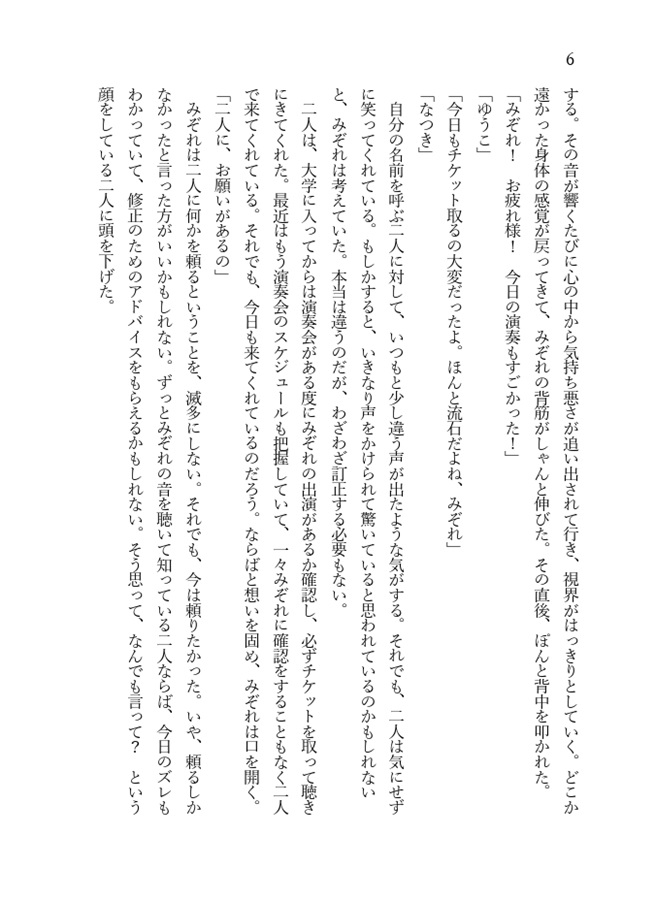 6
する。その音が響くたびに心の中から気持ち悪さが追い出されて行き、視界がはっきりとしていく。どこか
遠かった身体の感覚が戻ってきて、みぞれの背筋がしゃんと伸びた。その直後、ぽんと背中を叩かれた。
「みぞれ！　お疲れ様！　今日の演奏もすごかった！」
「ゆうこ」
「今日もチケット取るの大変だったよ。ほんと流石だよね、みぞれ」
「なつき」
　自分の名前を呼ぶ二人に対して、いつもと少し違う声が出たような気がする。それでも、二人は気にせず
に笑ってくれている。もしかすると、いきなり声をかけられて驚いていると思われているのかもしれない
と、みぞれは考えていた。本当は違うのだが、わざわざ訂正する必要もない。
　二人は、大学に入ってからは演奏会がある度にみぞれの出演があるか確認し、必ずチケットを取って聴き
にきてくれた。最近はもう演奏会のスケジュールも把握していて、一々みぞれに確認をすることもなく二人
で来てくれている。それでも、今日も来てくれているのだろう。ならばと想いを固め、みぞれは口を開く。
「二人に、お願いがあるの」
　みぞれは二人に何かを頼るということを、滅多にしない。それでも、今は頼りたかった。いや、頼るしか
なかったと言った方がいいかもしれない。ずっとみぞれの音を聴いて知っている二人ならば、今日のズレも
わかっていて、修正のためのアドバイスをもらえるかもしれない。そう思って、なんでも言って？　という
顔をしている二人に頭を下げた。